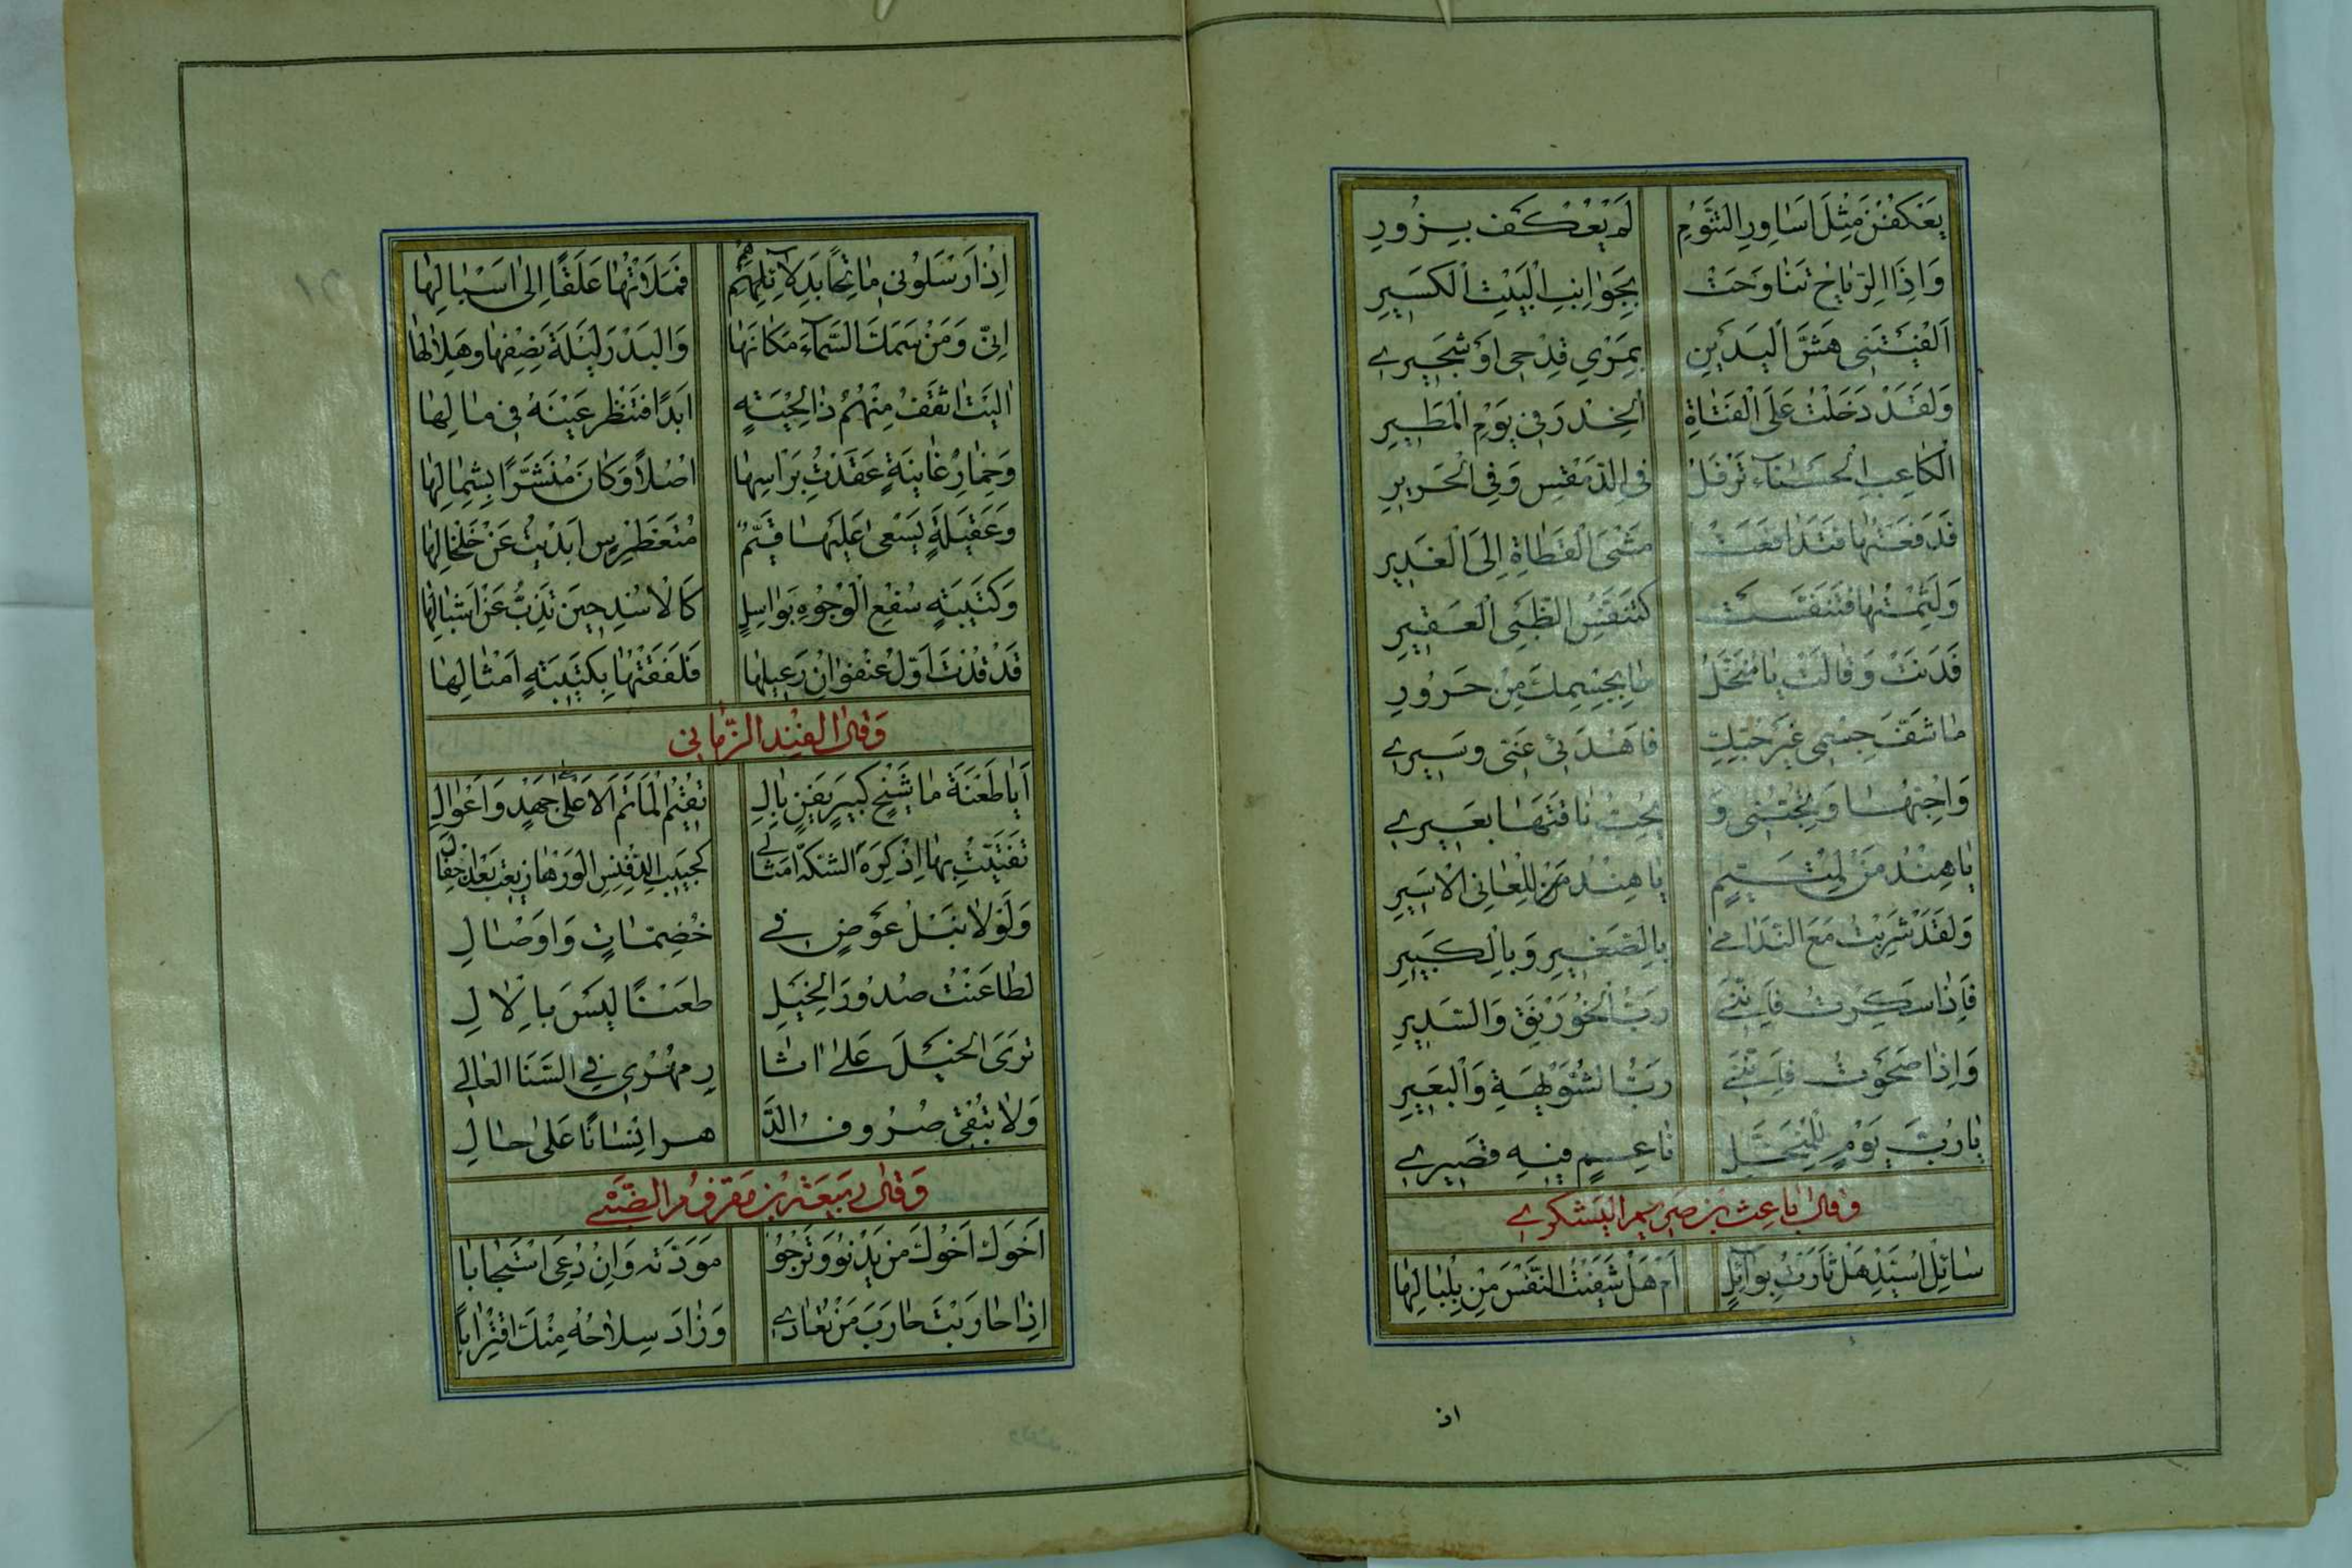 يَعْكُفْنَ مِثْلَ اَسَاوِرِ التَّنُّومِ لَمْ يُعْكَف بِزُورِ
وَاِذَا الرِّيَاحُ تَنَاوَحَتْ بِجَوَانِبِ الْبَيْتِ الْكَسِيرِ
اَلْفَيْتَنِي هَشَّ الْيَدَيْنِ بِمَرْيِ قِدْحِي اَوْ شَجِيرِي
وَلَقَدْ دَخَلْتُ عَلَى الْفَتَاةِ الْخِدْرَ فِي يَوْمِ الْمَطِيرِ
الْكَاعِبِ الْحَسْنَآءِ تَرْفُلُ فِي الدِّمَقْسِ وَفِي الْحَرِيرِ
فَدَفَعْتُهَا فَتَدَافَعَتْ مَشْىَ الْقَطَاةِ اِلَى الْغَدِيرِ
وَلَثِمْتُهَا فَتَنَفَّسَتْ كَتَنَفُّسِ الظَّبْىِ الْعَقِيرِ
فَدَنَتْ وَقَالَتْ يَا مُنَخَّلُ مَا بِجِسْمِكَ مِنْ حَرُورِ
مَا شَفَّ جِسْمِي غَيْرُ حُبِّكِ فَاهْدَئِي عَنِّي وَسِيرِي
وَاُحِبُّهَا وَتُحِبُّنِي وَ يُحِبُّ نَاقَتَهَا بَعِيرِي
يَا هِنْدُ مَنْ لِمُتَيَّمٍ يَا هِنْدُ مَنْ لِلْعَانِي الْاَسِيرِ
وَلَقَدْ شَرِبْتُ مَعَ النَّدَامٰى بِالصَّغِيرِ وَبِالْكَبِيرِ
فَاِذَا سَكِرْتُ فَاِنَّنِي رَبُّ الْخَوَرْنَقِ وَالسَّدِيرِ
وَاِذَا صَحَوْتُ فَاِنَّنِي رَبُّ الشُّوَيْهَةِ وَالْبَعِيرِ
يَا رُبَّ يَوْمٍ لِلْمُنَخَّلِ نَاعِمٍ فِيهِ قَصِيرِي
وَقَالَ بَاعِث بْن صَرِيمٍ الْيَشْكُرِي
سَائِلْ اُسَيِّدَ هَلْ ثَاَرْتُ بِوَآئِلٍ اَمْ هَلْ شَفَيْتُ النَّفْسَ مِنْ بِلْبَالِهَا
اذ
اِذْ اَرْسَلُونِي مَاتِحًا بَدِلَآئِهِمْ فَمَلَاْتُهَا عَلَقًا اِلَى اَسْبَالِهَا
اِنِّي وَمَنْ سَمَكَ السَّمَآءَ مَكَانَهَا وَالْبَدْرِ لَيْلَةَ نِصْفِهَا وَهِلَالِهَا
اٰلَيْتُ اَثْقَفُ مِنْهُمْ ذَا لِحْيَةٍ اَبَدًا فَتَنْظُرُ عَيْنُهُ فِي مَالِهَا
وَخِمَارِ غَانِيَةٍ عَقَدْتُ بِرَاْسِهَا اُصُلًا وَكَانَ مُنَشَّرًا بِشِمَالِهَا
وَعَقِيلَةٍ يَسْعَى عَلَيْهَا قَيِّمٌ مُتَغَطْرِسٌ اَبْدَيْتُ عَنْ خَلْخَالِهَا
وَكَتِيبَةٍ سُفْعِ الْوُجُوهِ بَوَاسِلٍ كَالْاُسْدِ حِينَ تَذُبُّ عَنْ اَشْبَالِهَا
قَدْ قُدْتُ اَوَّلَ عُنْفُوَانُ رَعِيلِهَا فَلَفَفْتُهَا بِكَتِيبَةٍ اَمْثَالِهَا
وَقَالَ الْفِنْدُ الزِّمَّانِي
اَيَا طَعْنَةَ مَا شَيْخٍ كَبِيرٍ يَفَنٍ بَالِ تُقِيمُ الْمَاْتَمَ الْاَعْلَى عَلَى جَهْدٍ وَاِعْوَالِ
تَفَتَّيْتُ بِهَا اِذْ كَرِهَ الشِّكَّةَ اَمْثَالِي كَجَيْبِ الدِّفْنِسِ الْوَرْهَا رِيعَتْ بَعْدَ اِجْفَالِ
وَلَوْلَا نَبْلُ عَوْضٍ فِي خُضِمَّاتٍ وَاَوْصَالِ
لَطَاعَنْتُ صُدُورَ الْخَيْلِ طَعْنًا لَيْسَ بِالْاٰلِ
تَرَى الْخَيْلَ عَلَى اٰثَا رِ مُهْرِي فِي السَّنَا الْعَالِي
وَلَا تُبْقِي صُرُوفُ الدَّ هر اِنْسَانًا عَلَى حَالِ
وَقَالَ رَبِيعَة بْن مَقْرُوم الضَّبِّي
اَخُوكَ اَخُوكَ مَنْ يَدْنُو وَتَرْجُو مَوَدَّتَه وَاِنْ دُعِىَ اسْتَجَابَا
اِذَا حَارَبْتَ حَارَبَ مَنْ تُعَادِي وَزَادَ سِلَاحُهُ مِنْكَ اقْتِرَابًا